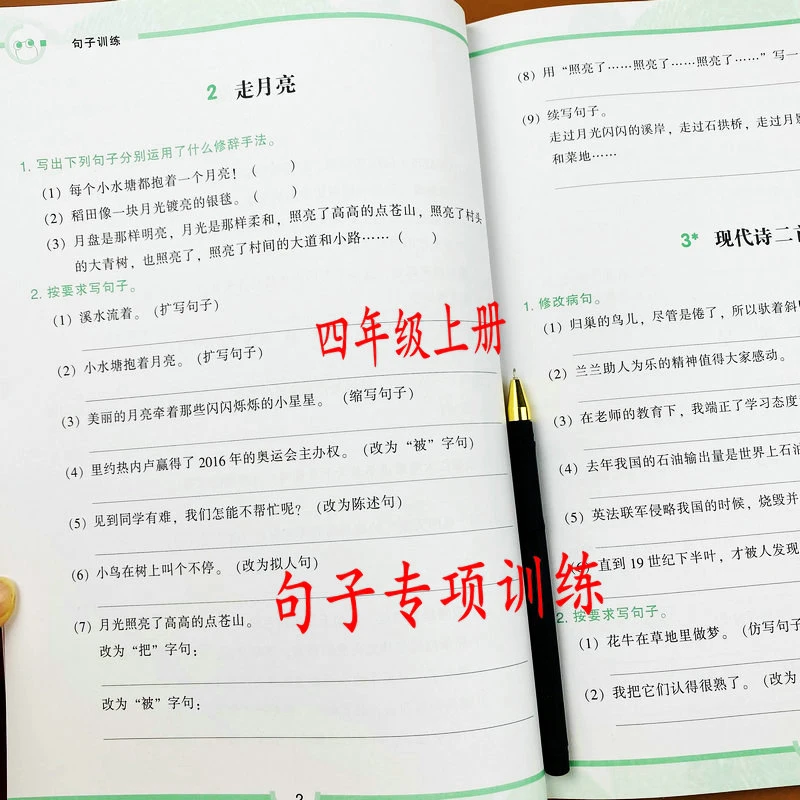 句子训练
2 走月亮
1. 写出下列句子分别运用了什么修辞手法。
（1）每个小水塘都抱着一个月亮！（ ）
（2）稻田像一块月光镀亮的银毯。（ ）
（3）月盘是那样明亮，月光是那样柔和，照亮了高高的点苍山，照亮了村头
的大青树，也照亮了，照亮了村间的大道和小路……（ ）
2. 按要求写句子。
（1）溪水流着。（扩写句子）
（2）小水塘抱着月亮。（扩写句子）
（3）美丽的月亮牵着那些闪闪烁烁的小星星。（缩写句子）
（4）里约热内卢赢得了2016年的奥运会主办权。（改为“被”字句）
（5）见到同学有难，我们怎能不帮忙呢？（改为陈述句）
（6）小鸟在树上叫个不停。（改为拟人句）
（7）月光照亮了高高的点苍山。
改为“把”字句：
改为“被”字句：
2
四年级上册
句子专项训练
（8）用“照亮了……照亮了……照亮了……”写一
（9）续写句子。
走过月光闪闪的溪岸，走过石拱桥，走过月影
和菜地……
3* 现代诗二
1. 修改病句。
（1）归巢的鸟儿，尽管是倦了，所以驮着斜
（2）兰兰助人为乐的精神值得大家感动。
（3）在老师的教育下，我端正了学习态度
（4）去年我国的石油输出量是世界上石油
（5）英法联军侵略我国的时候，烧毁并
直到19世纪下半叶，才被人发现
2. 按要求写句子。
（1）花牛在草地里做梦。（仿写句子
（2）我把它们认得很熟了。（改为